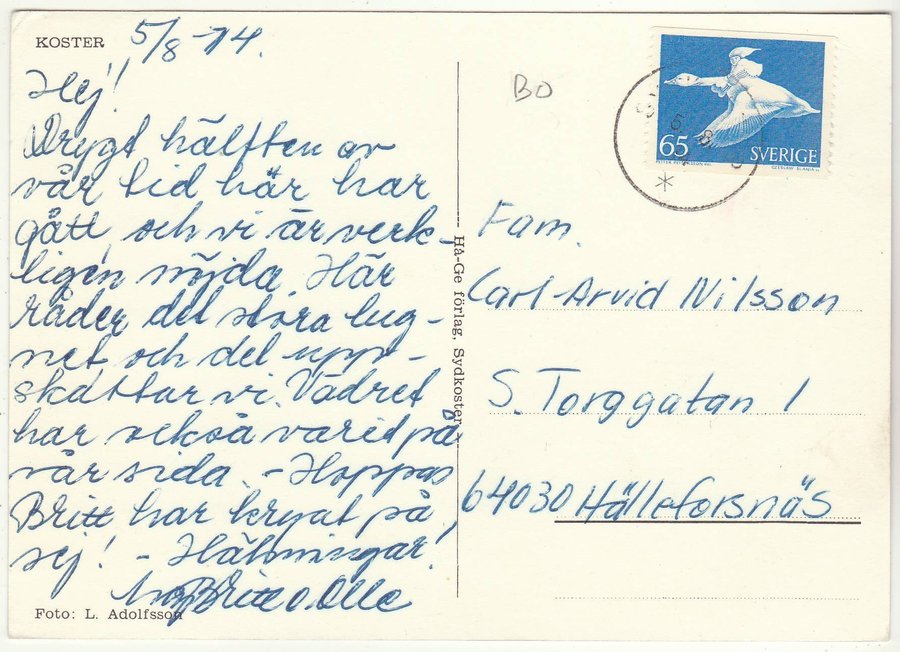 KOSTER
5/8-74.
Hej!
Drygt hälften av
vår tid här har
gått, och vi är verk-
ligen nöjda. Här
råder det stora lug-
net, och det upp-
skattar vi. Vädret
har också varit på
vår sida. - Hoppas
Britt har kryat på
sej! - Hälsningar!
Britt o. Olle
Foto: L. Adolfsson
Hå-Ge förlag, Sydkoster
BO
65
SVERIGE
Fam.
Carl-Arvid Nilsson
S. Torggatan 1
64030 Hälleforsnäs